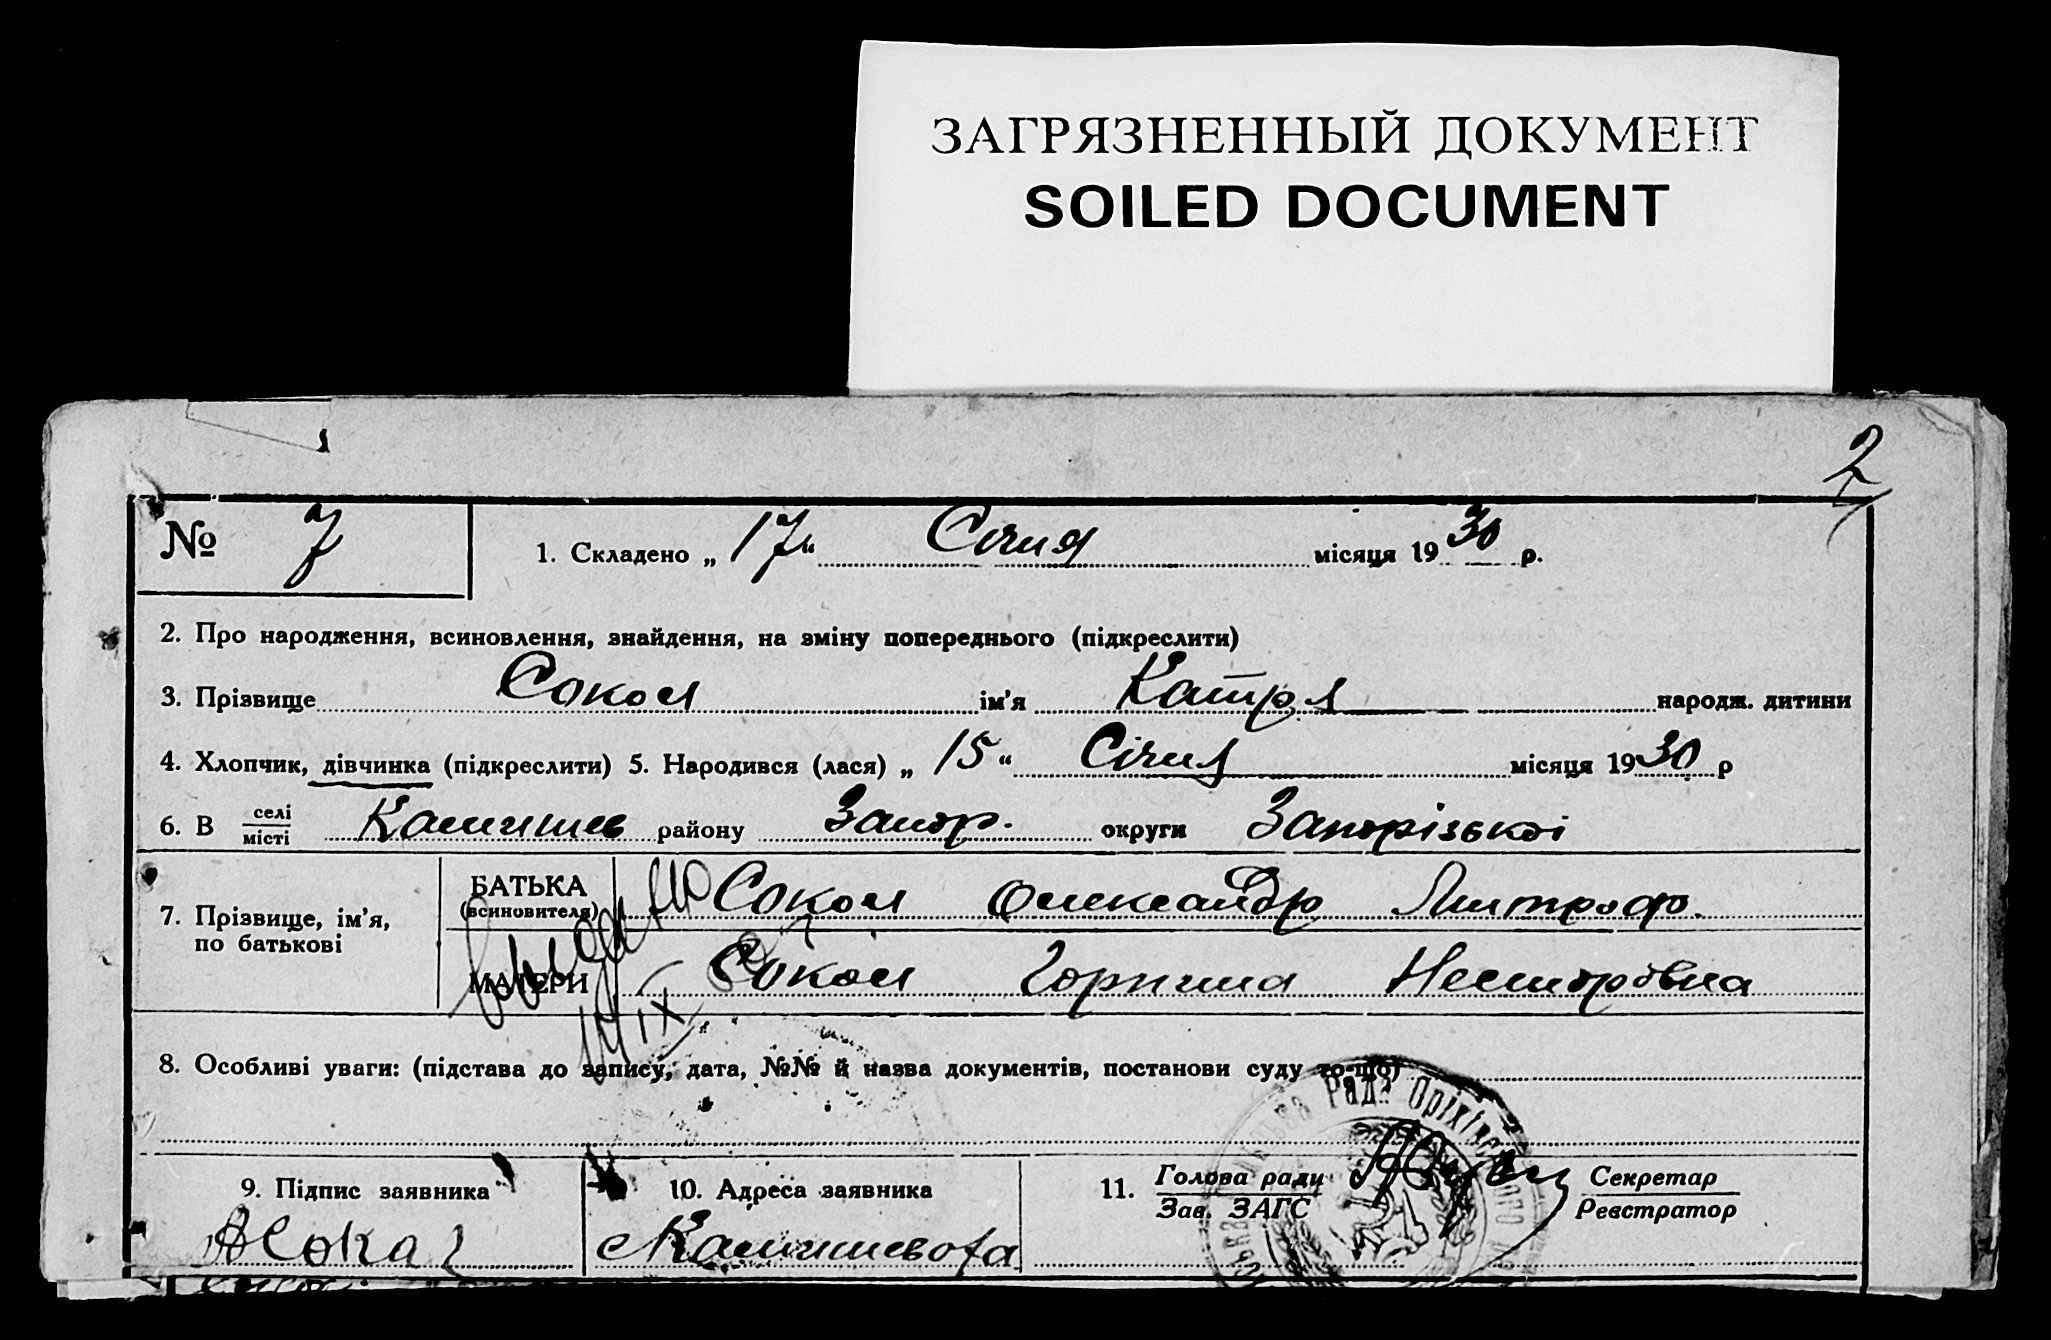 ЗАГРЯЗНЕННЫЙ ДОКУМЕНТ
SOILED DOCUMENT
2
№ 7
1. Складено „ 17 “ Січня місяця 1930 р.
2. Про народження, всиновлення, знайдення, на зміну попереднього (підкреслити)
3. Прізвище Сокол ім'я Катря народж. дитини
4. Хлопчик, дівчинка (підкреслити) 5. Народився (лася) „ 15 “ Січня місяця 1930 р
6. В селі місті Камишев району Запор. округи Запорізької
7. Прізвище, ім'я, по батькові
БАТЬКА (всиновителя) Сокол Олександр Митроф.
МАТЕРИ Сокол Горпина Несторовна
IX
8. Особливі уваги: (підстава до запису, дата, №№ й назва документів, постанови суду то-що)
Рада Оріхівс
9. Підпис заявника
10. Адреса заявника
11. Голова ради Зав. ЗАГС Секретар Реєстратор
АСокол